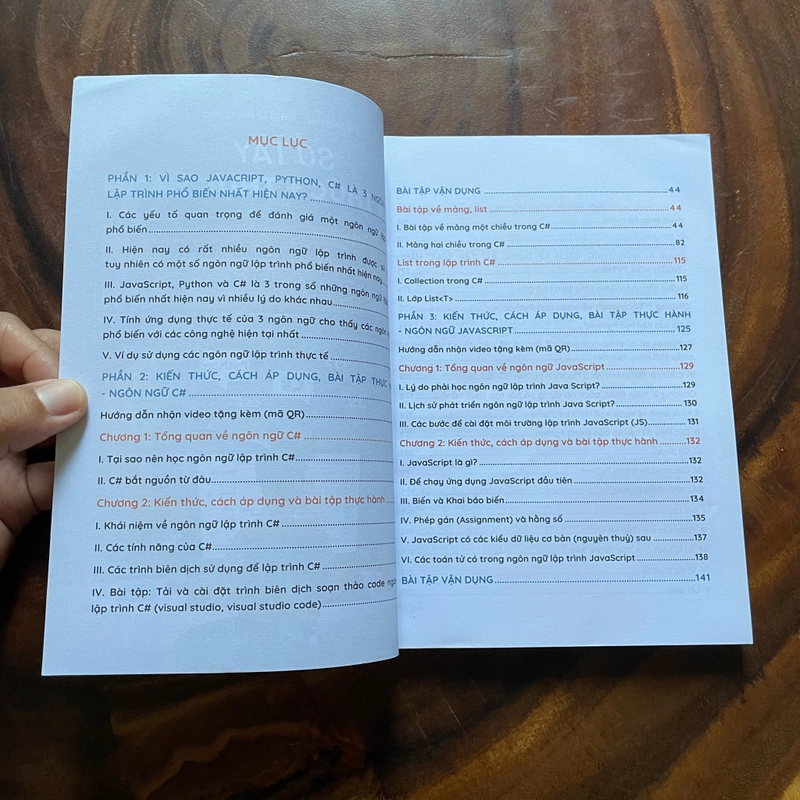 MỤC LỤC
PHẦN 1: VÌ SAO JAVACRIPT, PYTHON, C# LÀ 3 NGÔN
LẬP TRÌNH PHỔ BIẾN NHẤT HIỆN NAY?
I. Các yếu tố quan trọng để đánh giá một ngôn ngữ
phổ biến
II. Hiện nay có rất nhiều ngôn ngữ lập trình được
tuy nhiên có một số ngôn ngữ lập trình phổ biến nhất hiện nay
III. JavaScript, Python và C# là 3 trong số những ngôn ngữ
phổ biến nhất hiện nay vì nhiều lý do khác nhau
IV. Tính ứng dụng thực tế của 3 ngôn ngữ cho thấy các ngôn
phổ biến với các công nghệ hiện tại nhất
V. Ví dụ sử dụng các ngôn ngữ lập trình thực tế
PHẦN 2: KIẾN THỨC, CÁCH ÁP DỤNG, BÀI TẬP THỰC
- NGÔN NGỮ C#
Hướng dẫn nhận video tặng kèm (mã QR)
Chương 1: Tổng quan về ngôn ngữ C#
I. Tại sao nên học ngôn ngữ lập trình C#
II. C# bắt nguồn từ đâu
Chương 2: Kiến thức, cách áp dụng và bài tập thực hành
I. Khái niệm về ngôn ngữ lập trình C#
II. Các tính năng của C#
III. Các trình biên dịch sử dụng để lập trình C#
IV. Bài tập: Tải và cài đặt trình biên dịch soạn thảo code
lập trình C# (visual studio, visual studio code)
BÀI TẬP VẬN DỤNG 44
Bài tập về mảng, list 44
I. Bài tập về mảng một chiều trong C# 44
II. Mảng hai chiều trong C# 82
List trong lập trình C# 115
I. Collection trong C# 115
II. Lớp List<T> 116
PHẦN 3: KIẾN THỨC, CÁCH ÁP DỤNG, BÀI TẬP THỰC HÀNH
- NGÔN NGỮ JAVASCRIPT 125
Hướng dẫn nhận video tặng kèm (mã QR) 127
Chương 1: Tổng quan về ngôn ngữ JavaScript 129
I. Lý do phải học ngôn ngữ lập trình Java Script? 129
II. Lịch sử phát triển ngôn ngữ lập trình Java Script? 130
III. Các bước để cài đặt môi trường lập trình JavaScript (JS) 131
Chương 2: Kiến thức, cách áp dụng và bài tập thực hành 132
I. JavaScript là gì? 132
II. Để chạy ứng dụng JavaScript đầu tiên 132
III. Biến và Khai báo biến 134
IV. Phép gán (Assignment) và hằng số 135
V. JavaScript có các kiểu dữ liệu cơ bản (nguyên thuỷ) sau 137
VI. Các toán tử có trong ngôn ngữ lập trình JavaScript 138
BÀI TẬP VẬN DỤNG 141